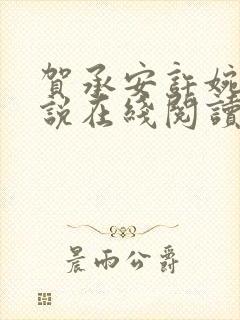 賀承安許婉
說在綫閱讀
晨雨公爵